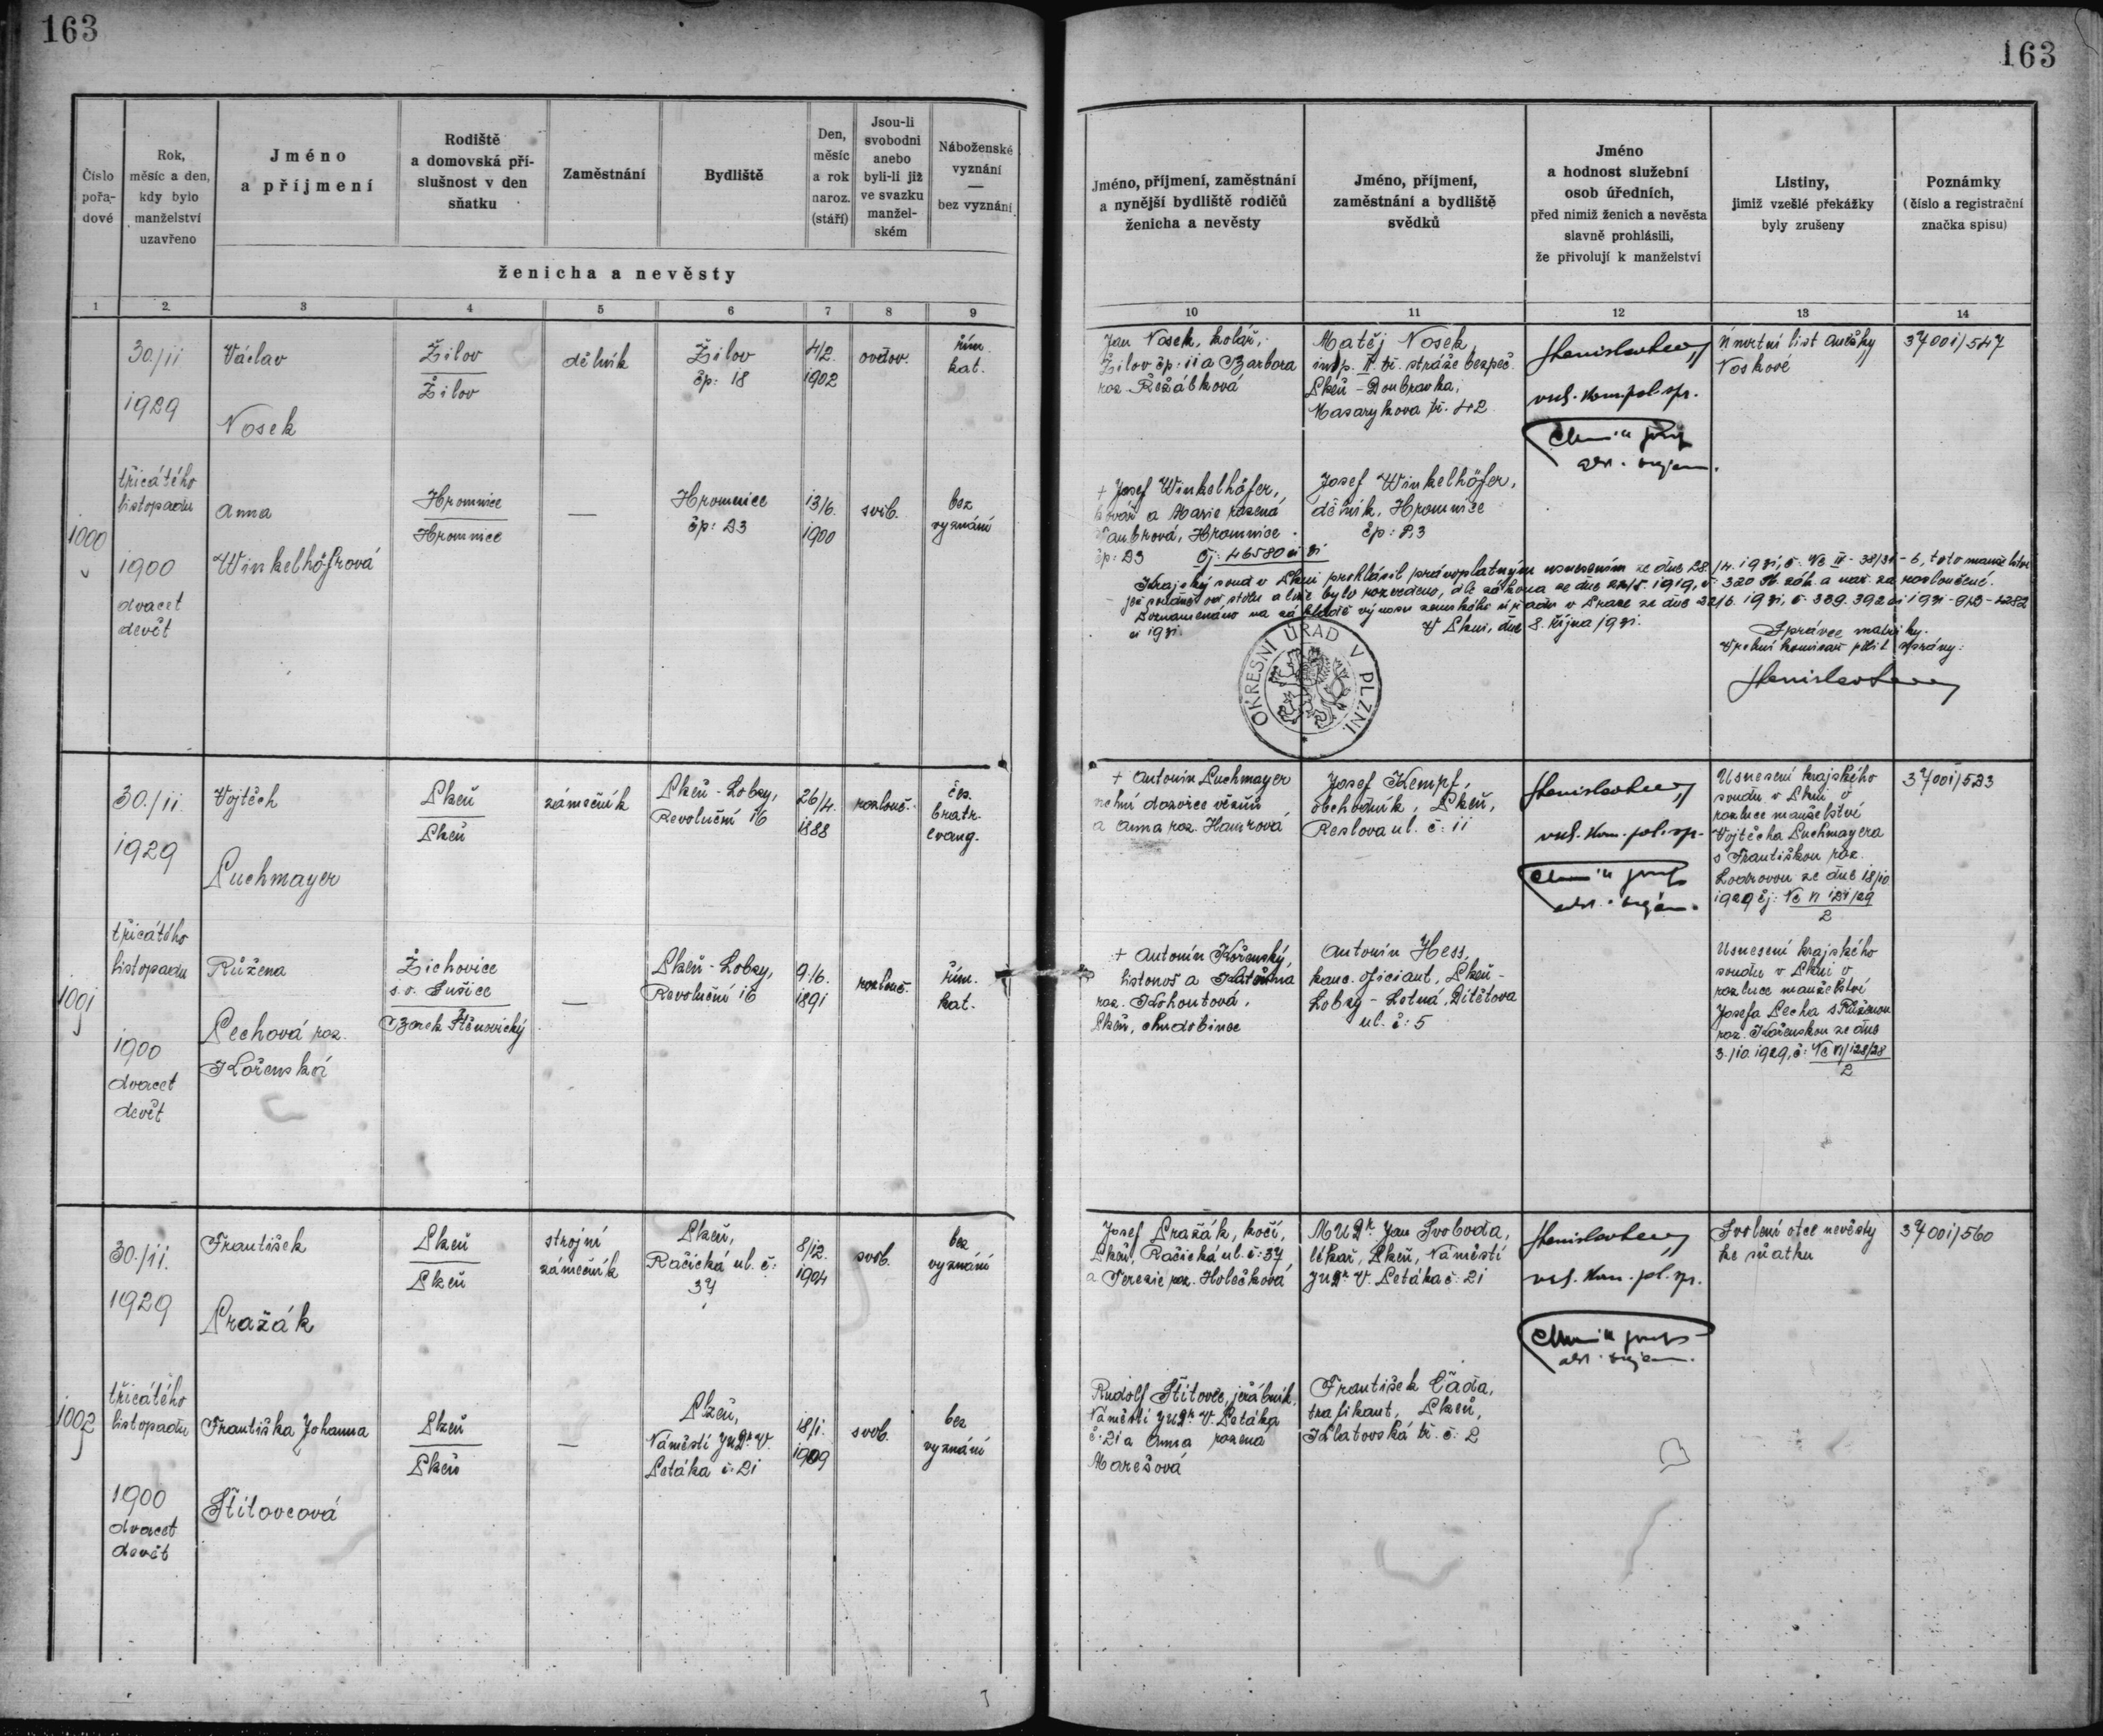 163
163
Číslo pořadové
Rok, měsíc a den, kdy bylo manželství uzavřeno
Jméno a příjmení
Rodiště a domovská příslušnost v den sňatku
Zaměstnání
Bydliště
Den, měsíc a rok naroz. (stáří)
Jsou-li svobodni anebo byli-li již ve svazku manželském
Náboženské vyznání — bez vyznání
ženicha a nevěsty
Jméno, příjmení, zaměstnání a nynější bydliště rodičů ženicha a nevěsty
Jméno, příjmení, zaměstnání a bydliště svědků
Jméno a hodnost služební osob úředních, před nimiž ženich a nevěsta slavně prohlásili, že přivolují k manželství
Listiny, jimiž vzešlé překážky byly zrušeny
Poznámky (číslo a registrační značka spisu)
1 2 3 4 5 6 7 8 9 10 11 12 13 14
1000
30./11
1929
třicátého
listopadu
1900
dvacet
devět
Václav
Nosek
Žilov
Žilov
dělník
Žilov
čp: 18
4/2.
1902
ovdov.
řím.
kat.
Jan Nosek, kolář,
Žilov čp: 11 a Barbora
roz. Řežábková
Matěj Nosek,
insp. II. tř. stráže bezpeč.
Plzeň - Doubravka,
Masarykova tř. 42
vrch. kom. pol. spr.
Úmrtní list Anežky
Noskové
37001/547
Anna
Winkelhöfrová
Hromnice
Hromnice
—
Hromnice
čp: 23
13/6.
1900
svob.
bez
vyznání
+ Josef Winkelhöfer,
kovář a Marie rozená
Taubrová, Hromnice
čp: 23
Josef Winkelhöfer,
dělník, Hromnice
čp: 23
Čj: 46580 ai 31
Krajský soud v Plzni prohlásil právoplatným usnesením ze dne 28./4. 1931, č. Nc II - 38/31 - 6, toto manželství,
jež soudně od stolu a lože bylo rozvedeno, dle zákona ze dne 22/5. 1919, č. 320 Sb. zák. a nař. za rozloučené.
Poznamenáno na základě výnosu zemského úřadu v Praze ze dne 22/6. 1931, č. 339.392 ai 1931
ai 1931.
V Plzni, dne 8. října 1931.
Správce matriky.
Vrchní komisař polit. správy:
OKRESNÍ ÚŘAD V PLZNI.
1001
30./11
1929
třicátého
listopadu
1900
dvacet
devět
Vojtěch
Puchmayer
Plzeň
Plzeň
zámečník
Plzeň - Lobzy,
Revoluční 16
26/4.
1888
rozlouč.
čes.
bratr.
evang.
+ Antonín Puchmayer
zemní dozorce vězňů
a Anna roz. Hamrová
Josef Kempf,
obchodník, Plzeň,
Reslova ul. č: 11
vrch. kom. pol. sp.
Usnesení krajského
soudu v Plzni o
rozluce manželství
Vojtěcha Puchmayera
s Františkou roz.
Lodrovou ze dne 18/10
1929 čj: Nc VI 121/29
2
37001/523
Růžena
Pechová roz.
Kořenská
Žichovice
s. o. Sušice
Borek Štěnovický
—
Plzeň - Lobzy,
Revoluční 16
9./6.
1891
rozlouč.
řím.
kat.
+ Antonín Kořenský,
listonoš a Kateřina
roz. Kohoutová,
Plzeň, chudobinec
Antonín Hess,
kanc. oficiant, Plzeň -
Lobzy - Letná, Dítětova
ul. č: 5
Usnesení krajského
soudu v Plzni o
rozluce manželství
Josefa Pecha s Růženou
roz. Kořenskou ze dne
3./10. 1929, č: Nc VI/128/28
2
1002
30./11.
1929
třicátého
listopadu
1900
dvacet
devět
František
Pražák
Plzeň
Plzeň
strojní
zámečník
Plzeň,
Račická ul. č:
37
8/12.
1904
svob.
bez
vyznání
Josef Pražák, kočí,
Plzeň, Račická ul. č: 37
a Terezie roz. Holečková
MUDr Jan Svoboda,
lékař, Plzeň, Náměstí
JUDr V. Petáka č: 21
vrch. kom. pol. sp.
Svolení otce nevěsty
ke sňatku
37001/560
Františka Johanna
Štítovcová
Plzeň
Plzeň
—
Plzeň,
Náměstí JUDr V.
Petáka č: 21
18/1.
1909
svob.
bez
vyznání
Rudolf Štítovec, jeřábník,
Náměstí JUDr V. Petáka
č: 21 a Anna rozená
Marešová
František Čada,
trafikant, Plzeň,
Klatovská tř. č: 2